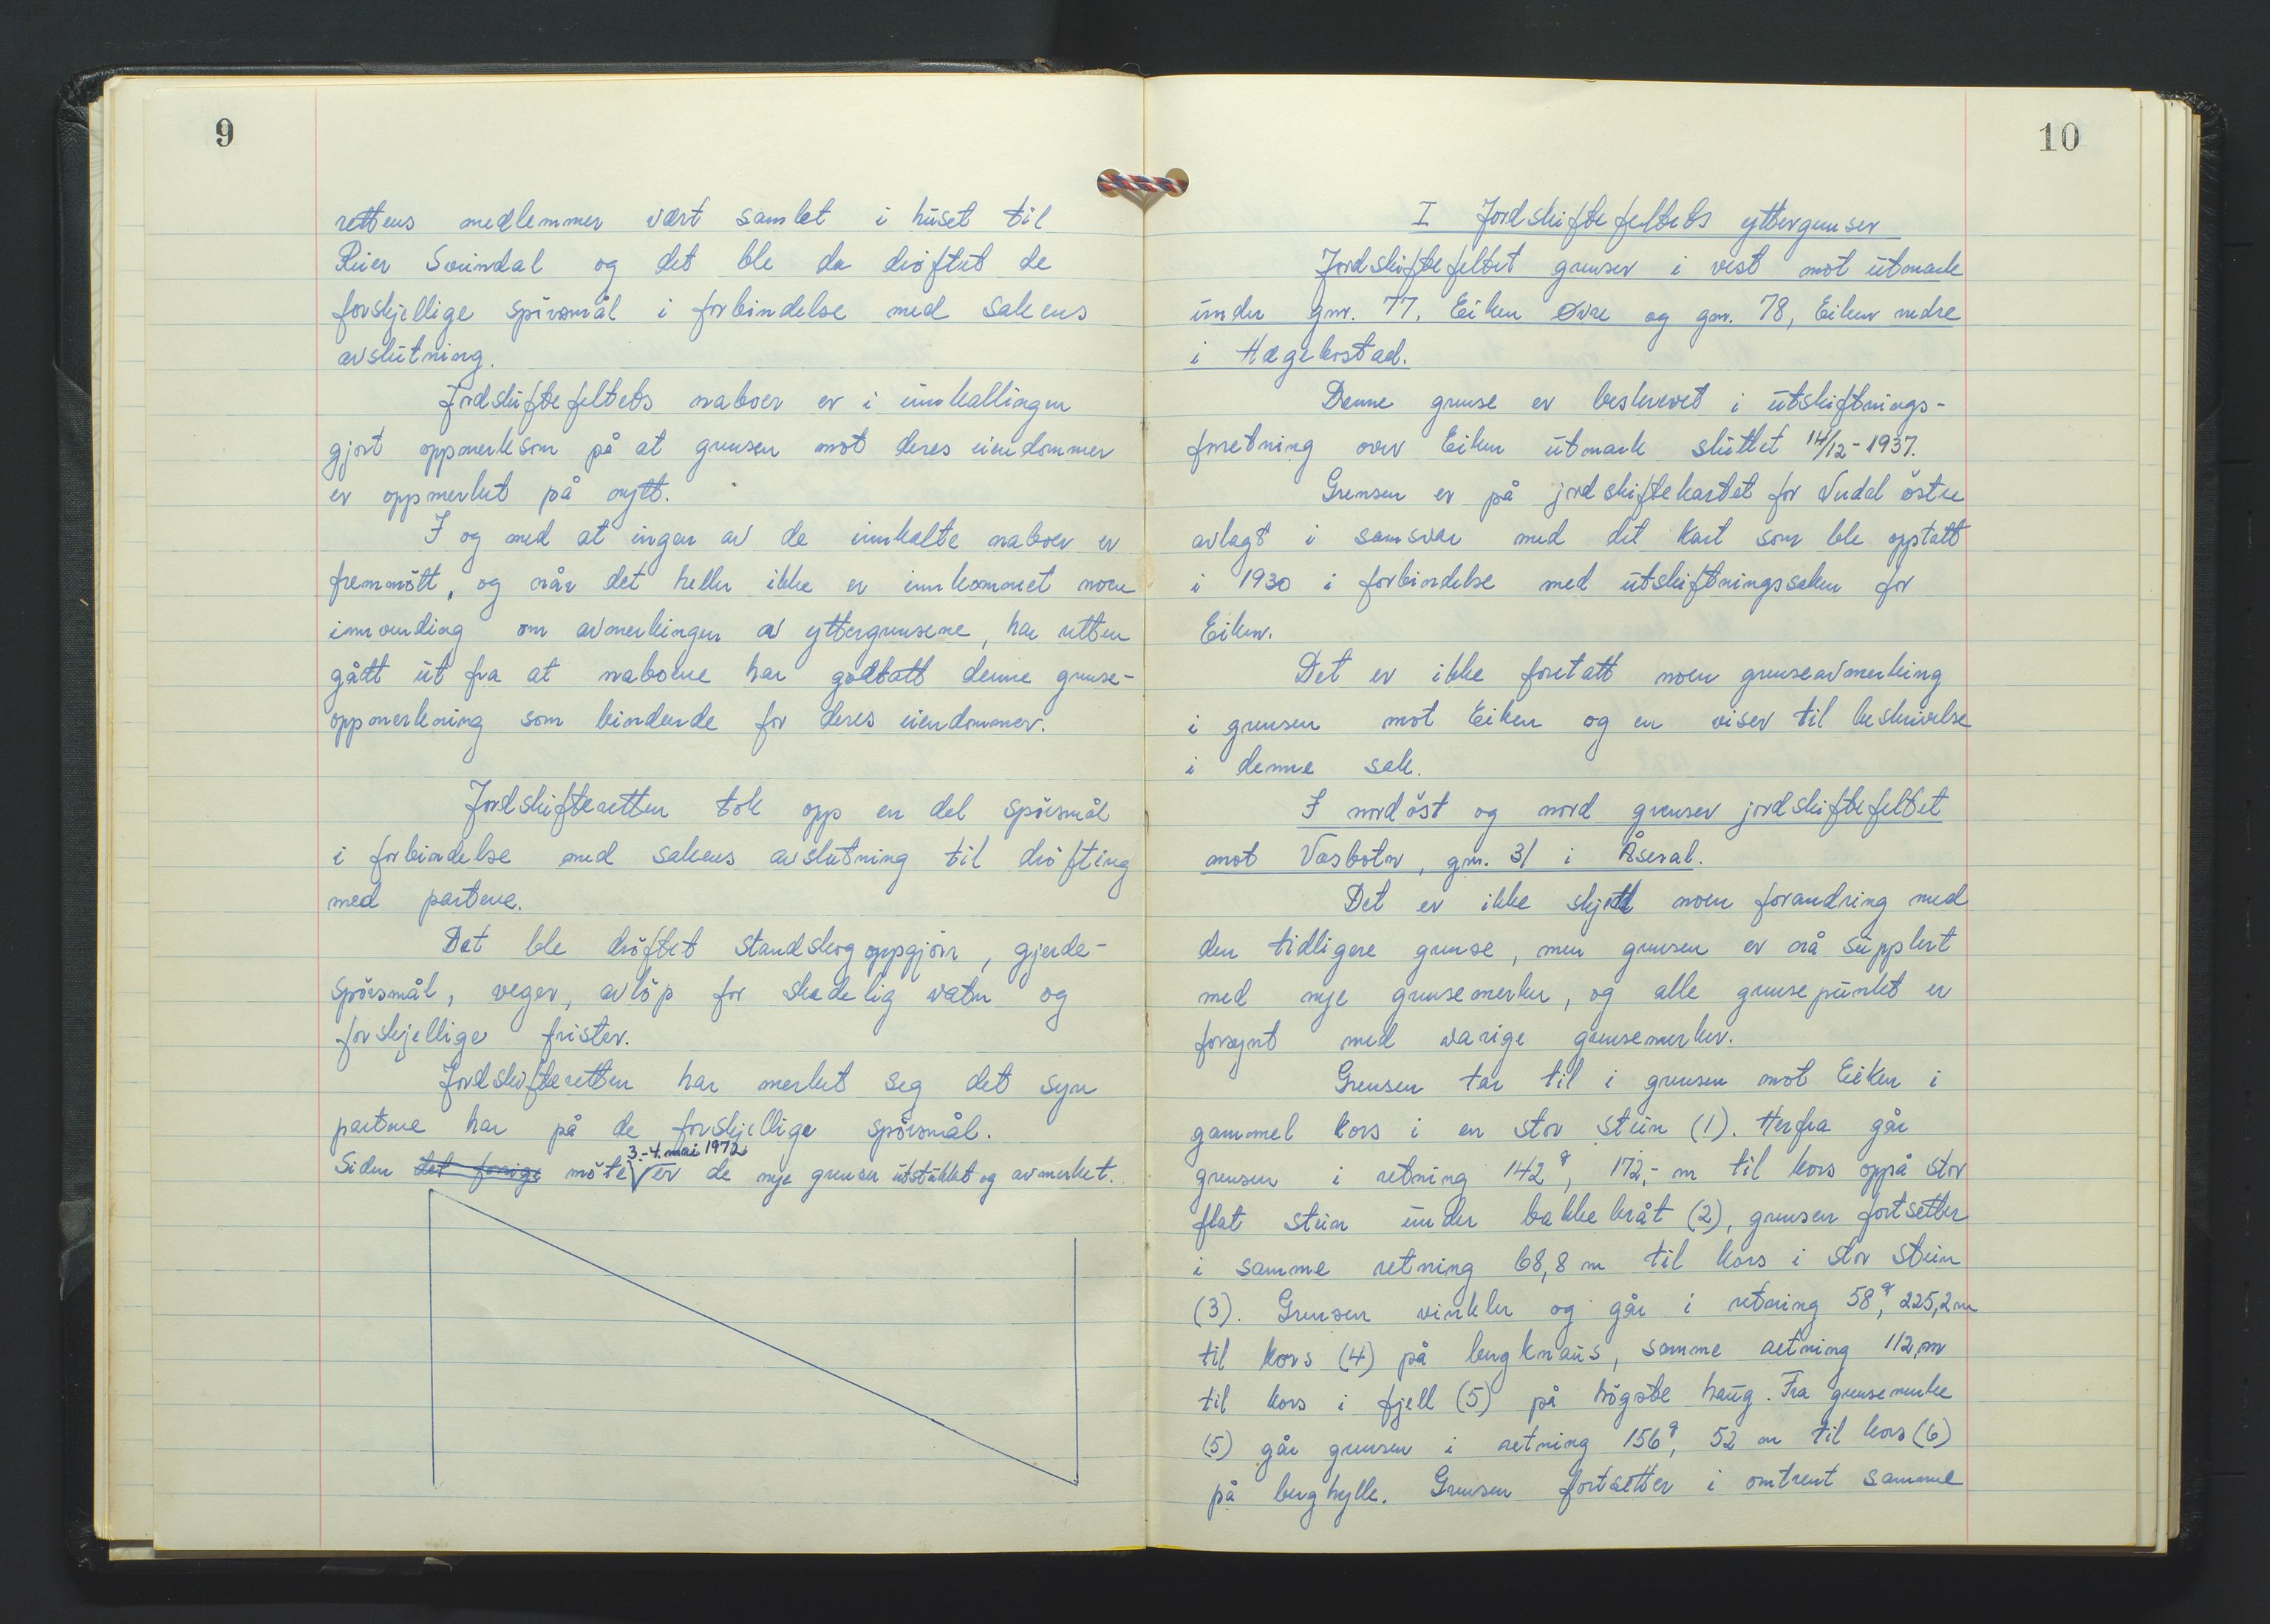 9
rettens medlemmer vært samlet i huset til
Reier Sveindal og det ble da dröftet de
forskjellige spörsmål i forbindelse med sakens
avslutning.
Jordskiftefeltets naboer er i innkallingen
gjort oppmerksom på at grensen mot deres eiendommer
er oppmerket på nytt.
I og med at ingen av de innkalte naboer er
fremmött, og når det heller ikke er innkommet noen
innvending om avmerkingen av yttergrensene, har retten
gått ut fra at naboene har godtatt denne grense-
oppmerkning som bindende for deres eiendommer.
Jordskifteretten tok opp en del spörsmål
i forbindelse med sakens avslutning til dröfting
med partene.
Det ble dröftet standskogoppgjör, gjerde-
spörsmål, veger, avlöp for skadelig vatn og
forskjellige frister.
Jordskifteretten har merket seg det syn
partene har på de forskjellige spörsmål.
3.-4. mai 1972
Siden det forige möte er de nye grenser utstukket og avmerket.
10
I Jordskiftefeltets yttergrenser
Jordskiftefeltet grenser i vest mot utmark
under gnr. 77, Eiken Øvre og gnr. 78, Eiken nedre
i Hægebostad.
Denne grense er beskrevet i utskiftnings-
forretning over Eiken utmark sluttet 14/12-1937.
Grensen er på jordskiftekartet for Verdal östre
avlagt i samsvar med det kart som ble opptatt
i 1930 i forbindelse med utskiftningssaken for
Eiken.
Det er ikke foretatt noen grenseavmerking
i grensen mot Eiken og en viser til beskrivelse
i denne sak.
I nordöst og nord grenser jordskiftefeltet
mot Vasbotn, gnr. 31 i Åseral.
Det er ikke skjedd noen forandring med
den tidligere grense, men grensen er nå supplert
med nye grensemerker, og alle grensepunkt er
forsynt med varige grensemerker.
Grensen tar til i grensen mot Eiken i
gammel kors i en stor stein (1). Herfra går
grensen i retning 142g, 172,- m til kors oppå stor
flat stein under bakkebråt (2), grensen fortsetter
i samme retning 68,8 m til kors i stor stein
(3). Grensen vinkler og går i retning 58g, 225,2 m
til kors (4) på bergknaus, samme retning 112,m
til kors i fjell (5) på högste haug. Fra grensemerke
(5) går grensen i retning 156g, 52 m til kors (6)
på berghylle. Grensen fortsetter i omtrent samme